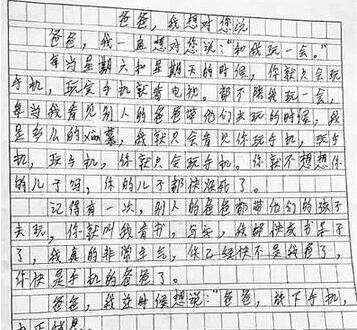 爸爸，我想对您说
爸爸，我一直想对您说："和我玩一会。"
每当星期六和星期天的时候，你就只会玩
手机，玩完手机就看电视。都不陪我玩一会，
每当我看见别人的爸爸带他们去玩的时候，我
是多么的xiàn慕，我就只会看见你玩手机，玩手
机，玩手机，你就只会玩手机。你就不想想你
的儿子吗，你的儿子都快疯了。
记得有一次，别人的爸爸都带他们的孩子
去玩，你就叫我看书，写字，我都快成书呆子
了，我真的非常生气，你已经快不是我爸了，
你快是手机的爸爸了。
爸爸，我这时候想说："爸爸，放下手机，